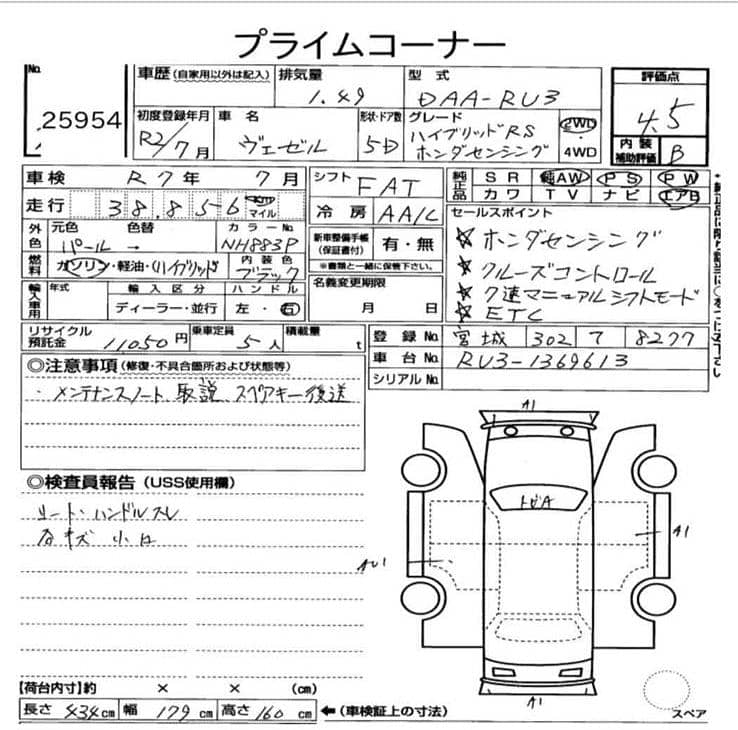 プライムコーナー
No. 25954
車歴 (自家用以外は記入) 排気量 1.49 型式 DAA-RU3
初度登録年月 R2/7月 車名 ヴェゼル 形状・ドア数 5D グレード ハイブリッドRS ホンダセンシング 2WD・4WD
評価点 4.5
内装補助評価 B
車検 R7年 7月 シフト FAT 純正品 SR 純AW PS PW
カワ TV ナビ エアB
走行 38,856 km マイル 冷房 AA/C
セールスポイント
☆ ホンダセンシング
☆ クルーズコントロール
☆ 7速マニュアルシフトモード
☆ ETC
外色 元色 パール 色替 → カラーNo. NH883P
新車整備手帳(保証書付) 有・無
※書類と一緒に保管下さい。
燃料 ガソリン・軽油・(ハイブリッド) 内装色 ブラック
名義変更期限 月 日
輸入車用 年式 輸入区分 ディーラー・並行 ハンドル 左・右
リサイクル預託金 11,050円 乗車定員 5人 積載量 t
登録No. 宮城 302 7 8277
車台No. RU3-1369613
シリアルNo.
◎注意事項(修復・不具合箇所および状態等)
・メンテナンスノート 取説 スペアキー後送
◎検査員報告(USS使用欄)
シート・ハンドルスレ
各キズ 小凹
A1
トビA
A1
AU1
A1
スペア
【荷台内寸】約 × × (cm)
長さ 434cm 幅 179cm 高さ 160cm ←(車検証上の寸法)